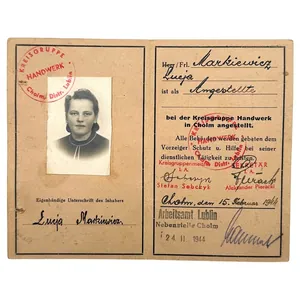 KREISGRUPPE
HANDWERK
Cholm, Distr. Lublin
Eigenhändige Unterschrift des Inhabers
Łucja Markiewicz
Herr/Frl. Markiewicz
Łucja
ist als Angestellte
bei der Kreisgruppe Handwerk
in Cholm angestellt.
Alle Behörden werden gebeten dem
Vorzeiger Schutz u. Hilfe bei seiner
dienstlichen Tätigkeit zu
HANDWERK
SEKRETÄR
Stefan Sobczyk
Aleksander Pieracki
Cholm, 15. Februar 1944
Arbeitsamt Lublin
Nebenstelle Cholm
24 II 1944